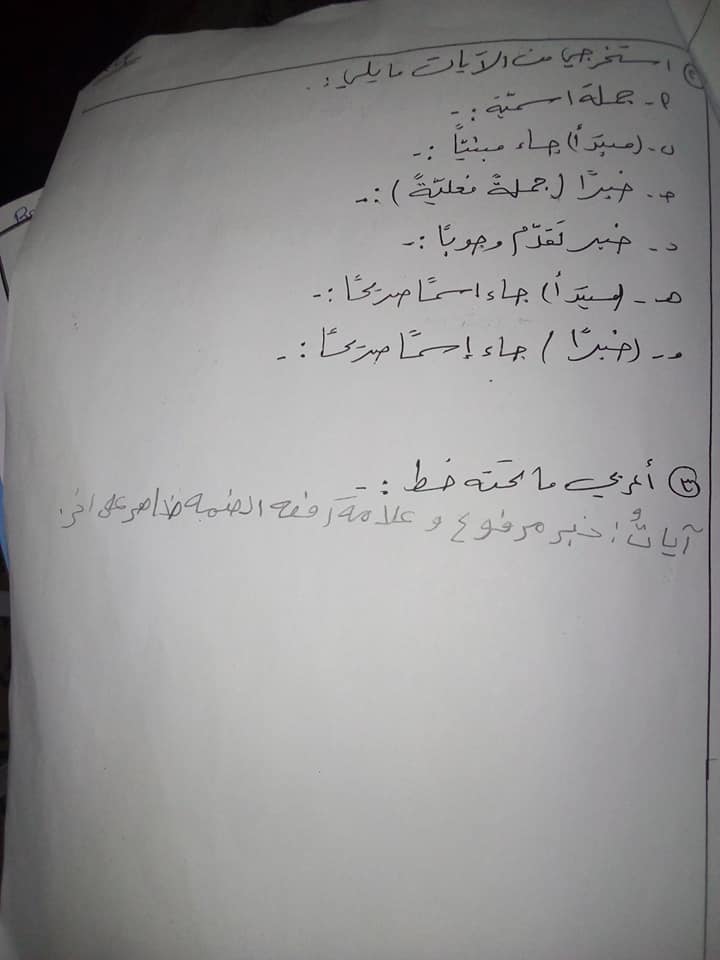 ② استخرجي من الآيات ما يلي :.
أ- جملة اسميّة :-
ب- (مبتدَأ) جاء مبنيّاً :-
جـ- خبرًا (جملةً فعليّةً) :-
د- خبر تَقدّم وجوبًا :-
هـ- (مبتدَأ) جاء اسمًا صريحًا :-
و- (خبرًا) جاء إسمًا صريحًا :-
③ أعربي ما تحته خط :-
آياتٌ : خبر مرفوع و علامة رفعه الضمه ظاهر على اخر.